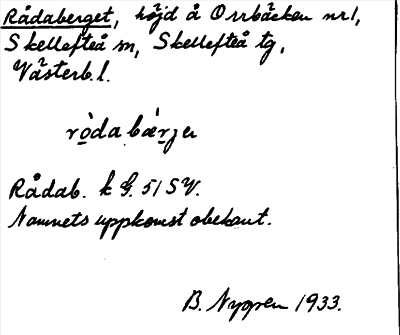 Rådaberget, höjd å Orrbäcken nr1,
Skellefteå sn, Skellefteå tg,
Västerb. l.
ròda bærjer
Rådab. k G. 51 SV.
Namnets uppkomst obekant.
B. Nygren 1933.